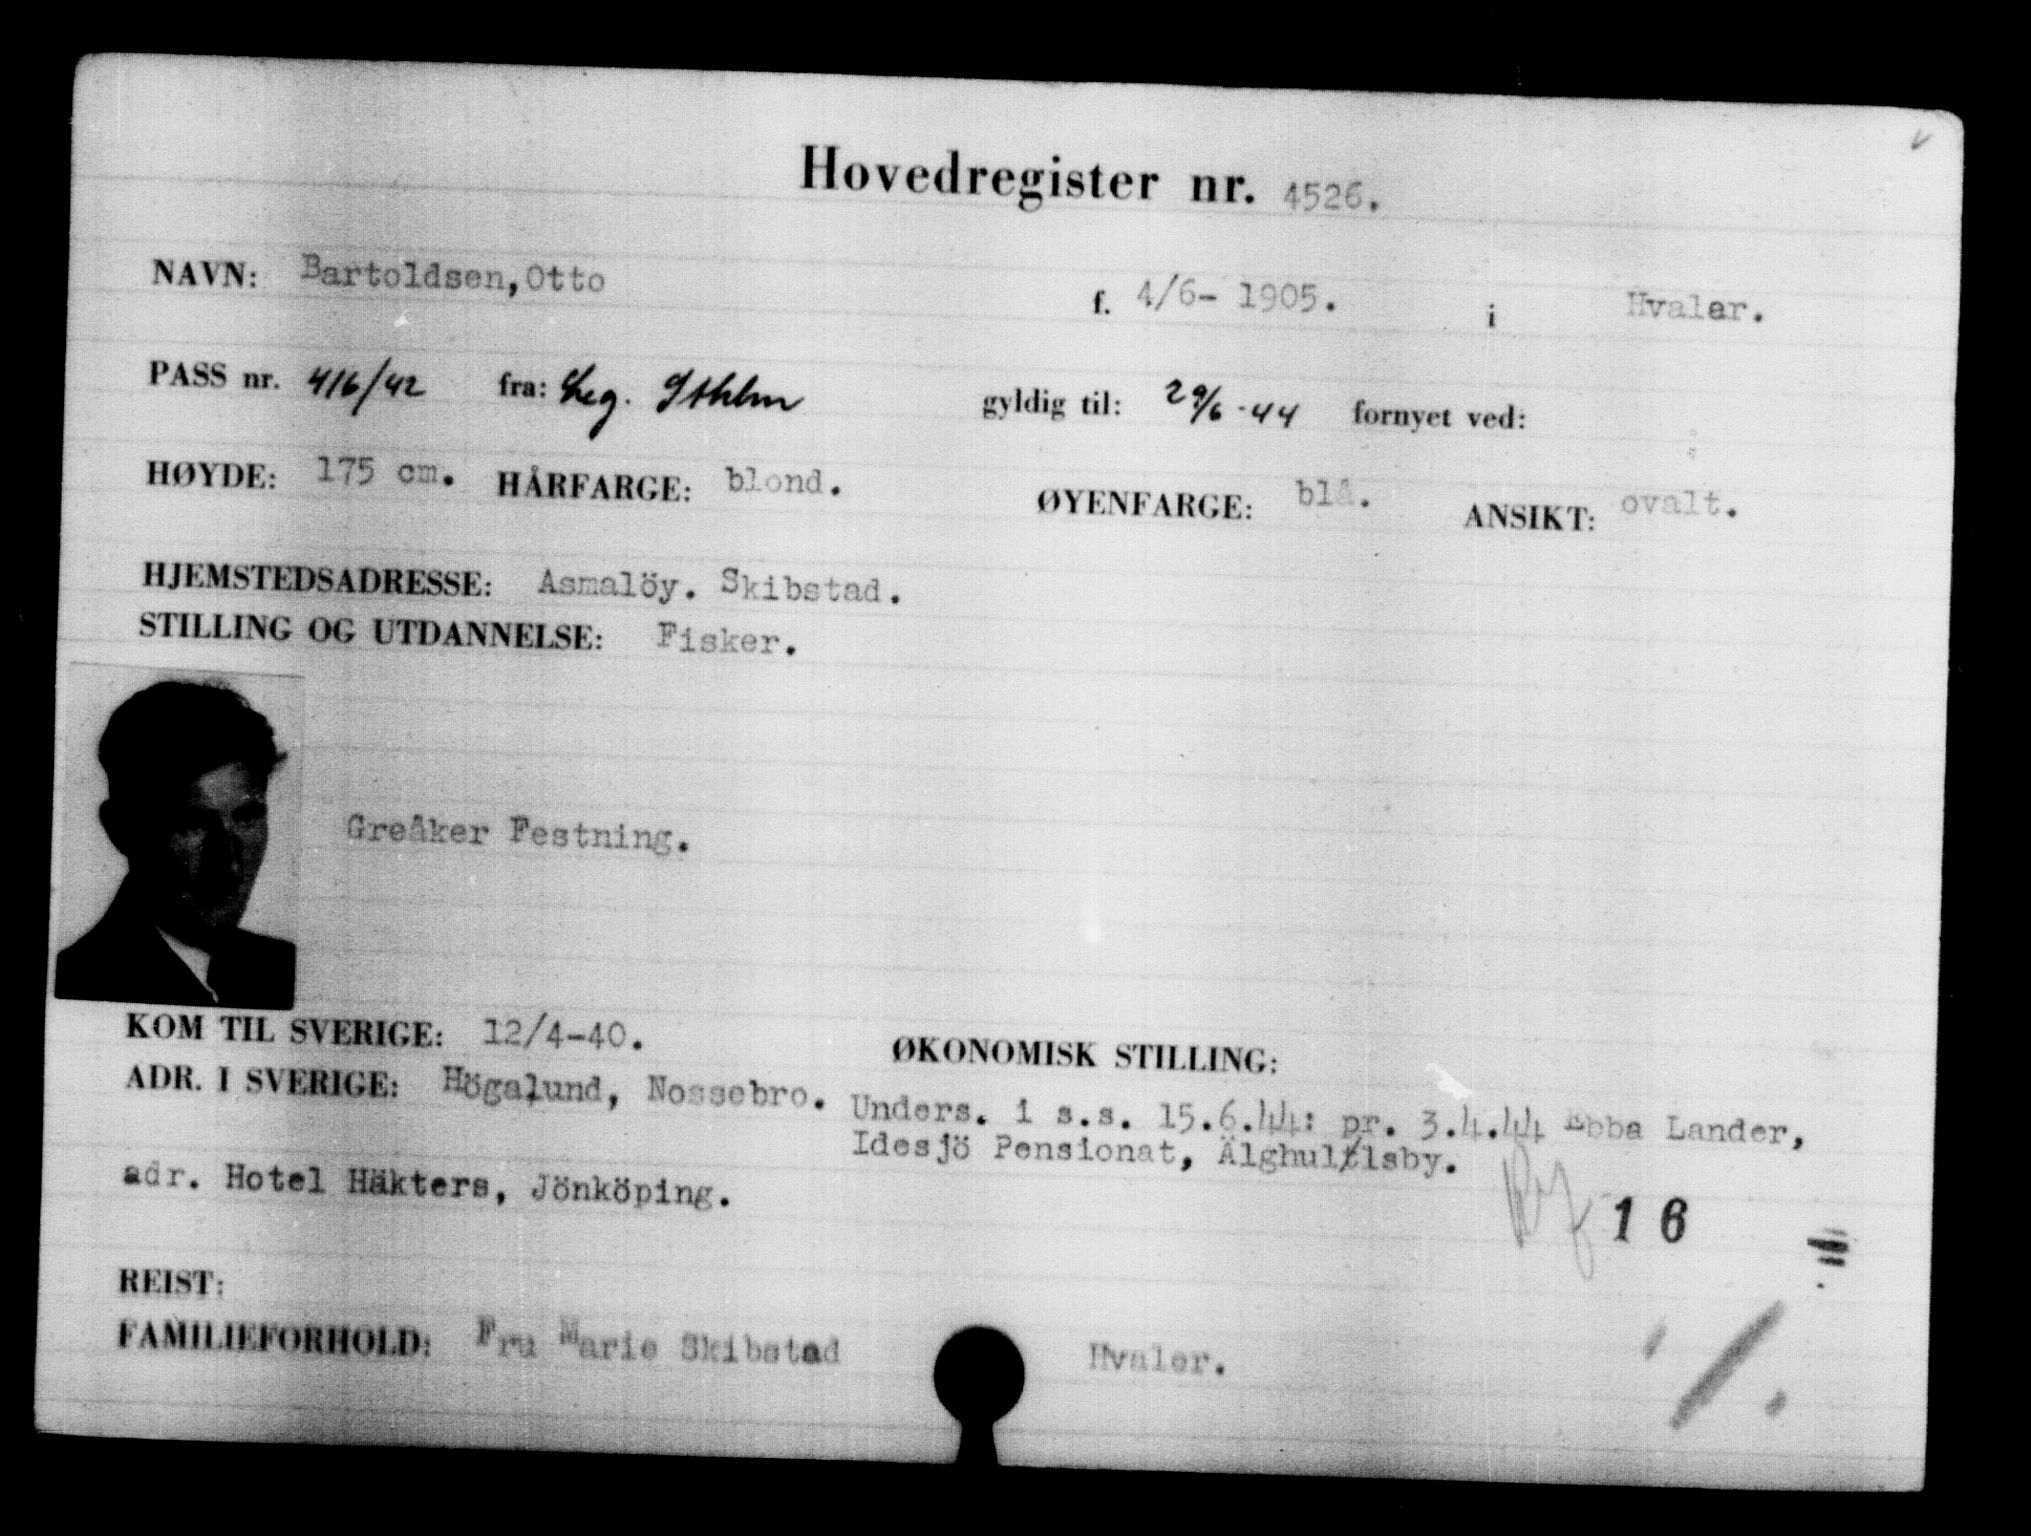 Hovedregister nr. 4526.
NAVN: Bartoldsen, Otto f. 4/6- 1905. i Hvaler.
PASS nr. 416/42 fra: Leg. Sthlm gyldig til: 29/6-44 fornyet ved:
HØYDE: 175 cm. HÅRFARGE: blond. ØYENFARGE: blå. ANSIKT: ovalt.
HJEMSTEDSADRESSE: Asmalöy. Skibstad.
STILLING OG UTDANNELSE: Fisker.
Greåker Festning.
KOM TIL SVERIGE: 12/4-40. ØKONOMISK STILLING:
ADR. I SVERIGE: Högalund, Nossebro. Unders. i s.s. 15.6.44: pr. 3.4.44 Ebba Lander,
Idesjö Pensionat,
adr. Hotel Häkters, Jönköping.
16
REIST:
FAMILIEFORHOLD: Fru Marie Skibstad Hvaler.